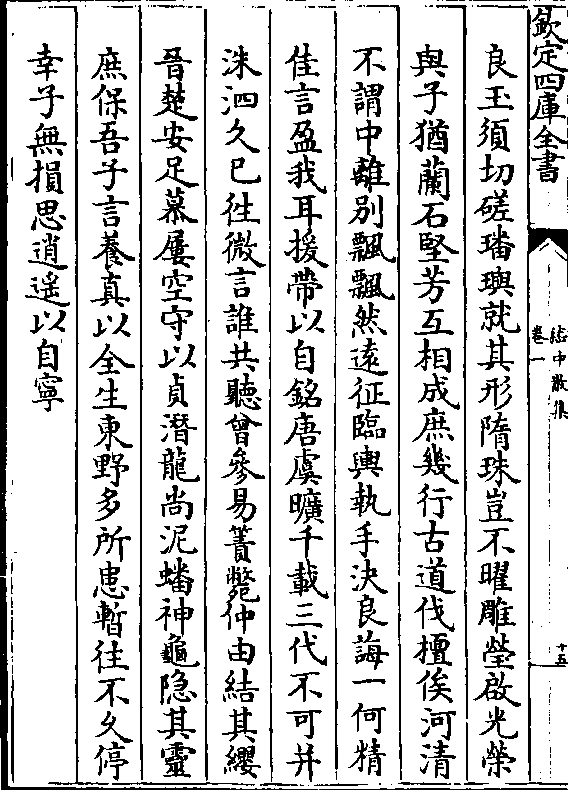 欽定四庫全書
嵇中散集
卷一
十五
良玉須切磋璠璵就其形隋珠豈不曜雕瑩啟光榮
與子猶蘭石堅芳互相成庶幾行古道伐檀俟河清
不謂中離別飄飄然遠征臨輿執手決良誨一何精
佳言盈我耳援帶以自銘唐虞曠千載三代不可并
洙泗久已徃微言誰共聽曾參易簀斃仲由結其纓
晉楚安足慕屢空守以貞潛龍尚泥蟠神龜隐其靈
庶保吾子言養真以全生東野多所患暫往不久停
幸子無損思逍遙以自寧